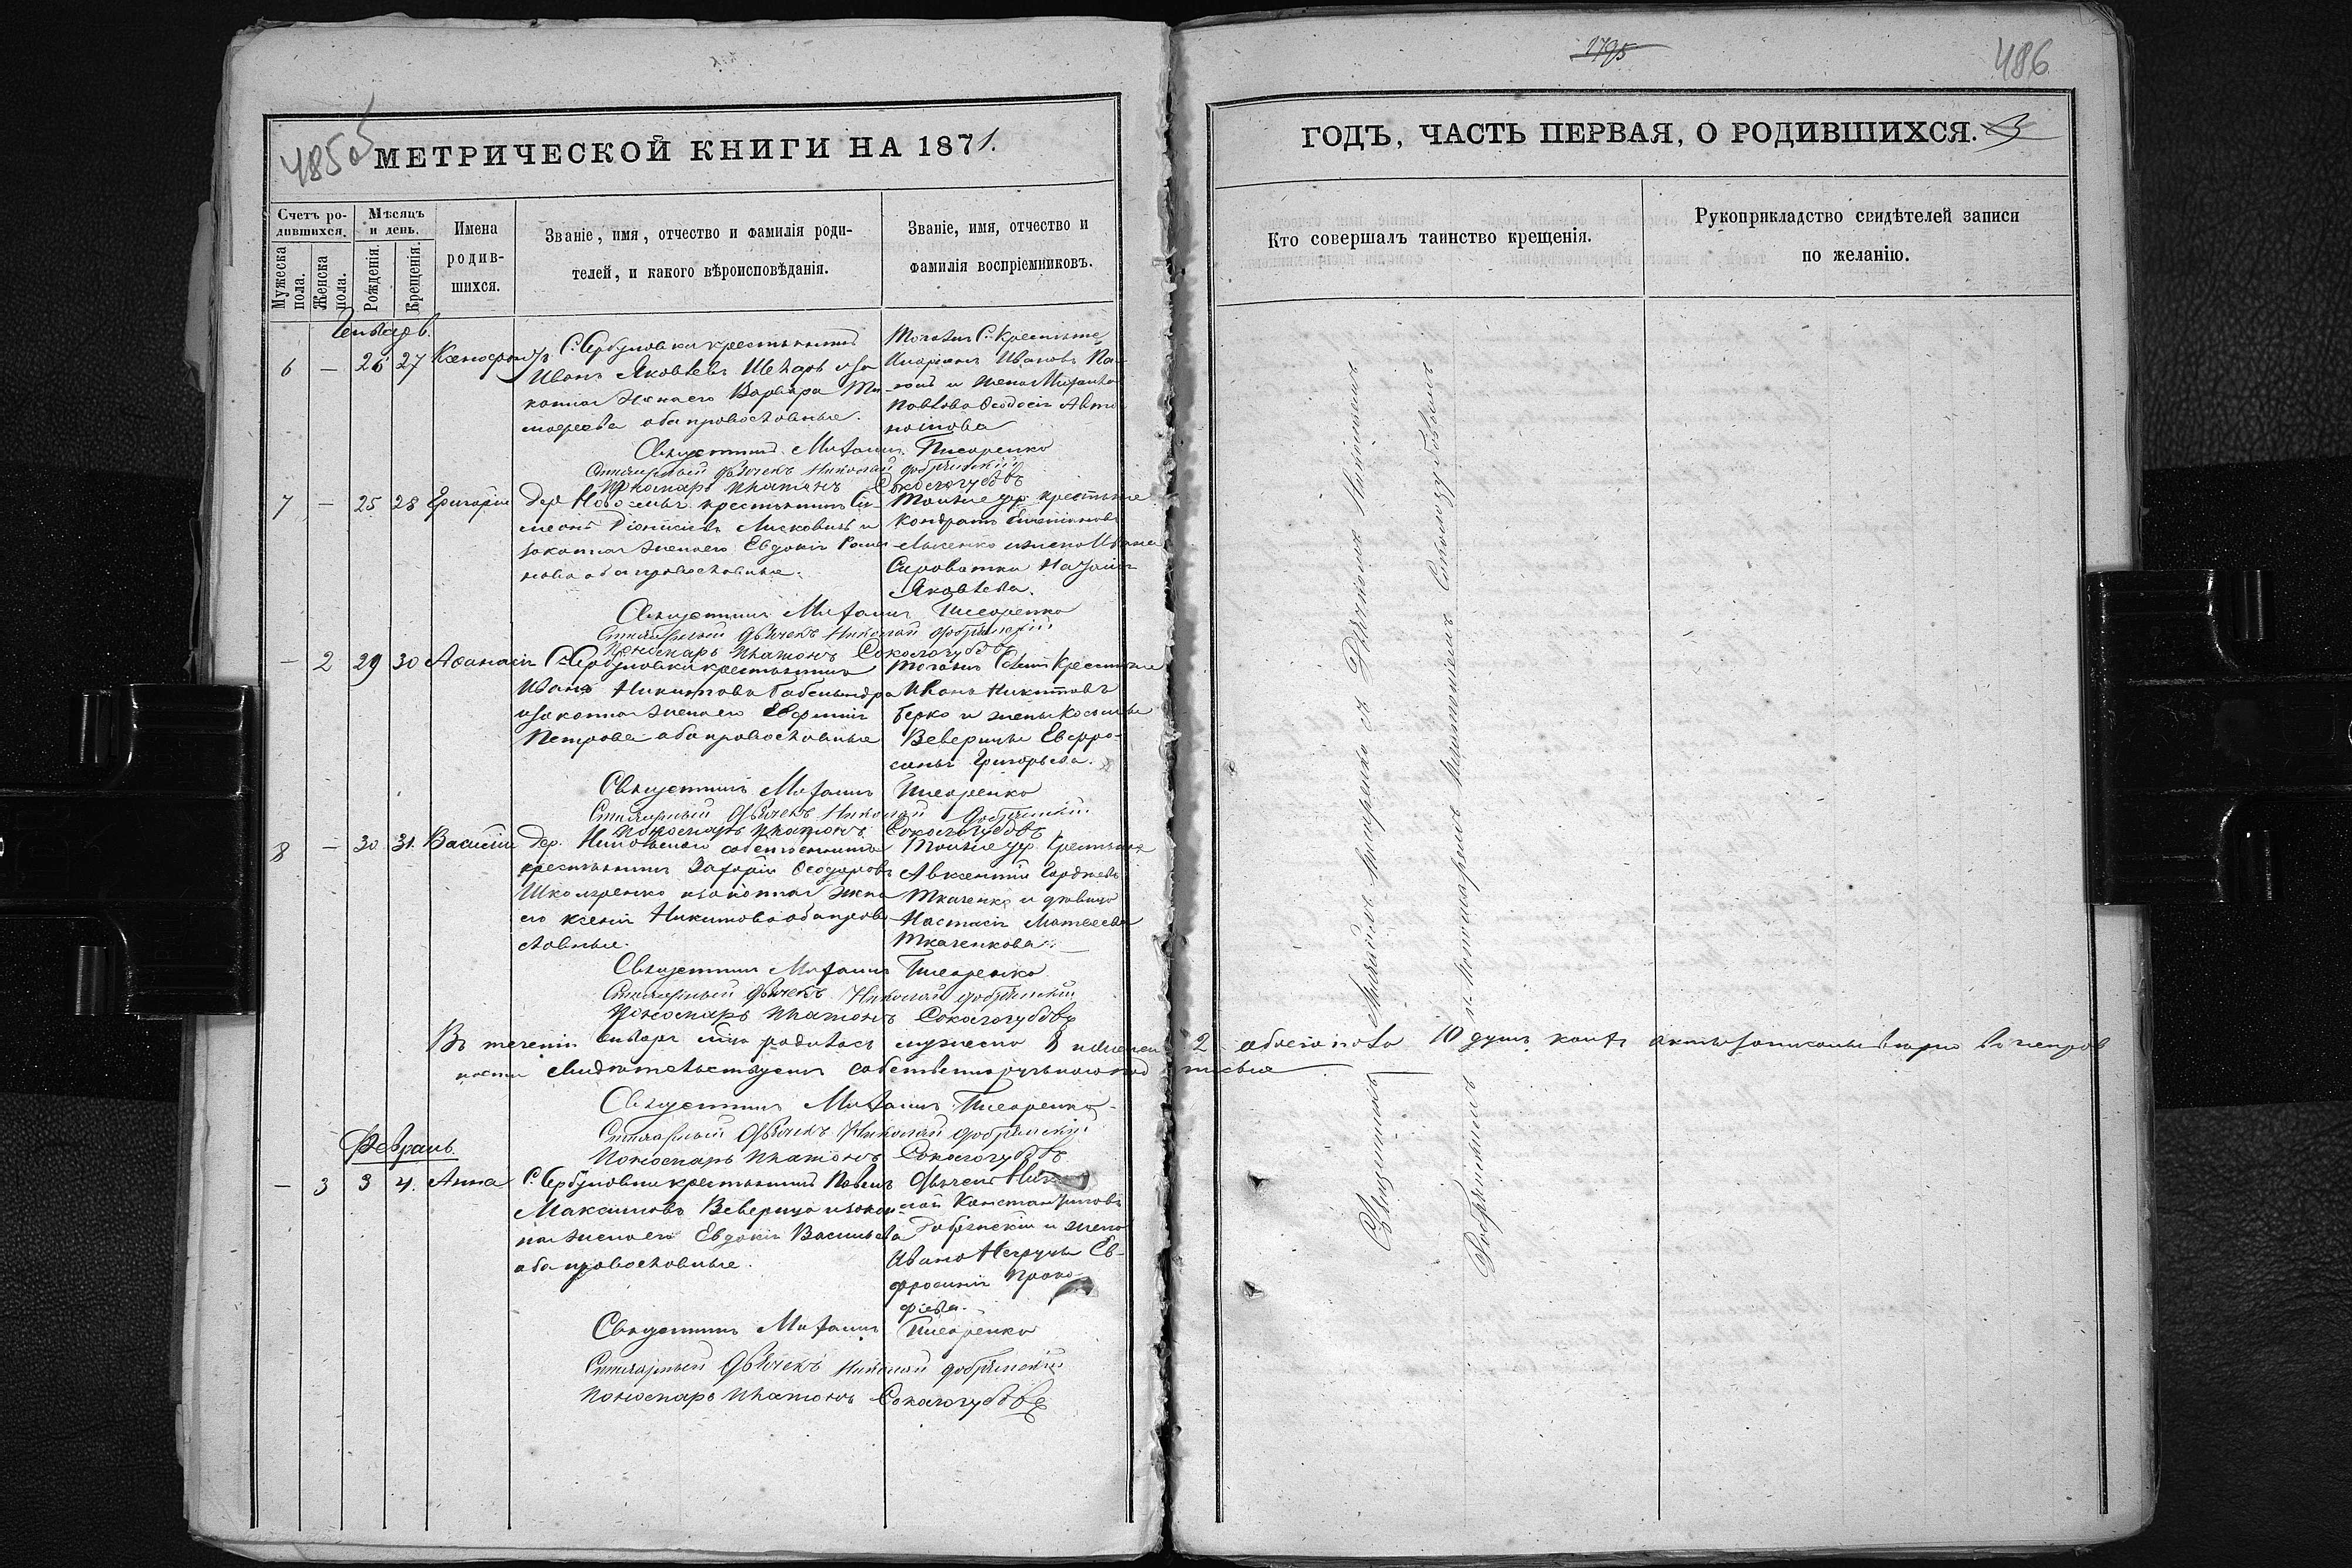 485об
МЕТРИЧЕСКОЙ КНИГИ НА 1871.
Счетъ ро-
дившихся.
Мужеска
пола.
Женска
пола.
Мѣсяцъ
и день.
Рожденія.
Крещенія.
Имена
родив-
шихся.
Званіе, имя, отчество и фамилія роди-
телей, и какого вѣроисповѣданія.
Званіе, имя, отчество и
фамилія воспріемниковъ.
Генварь.
6 — 26 27 Ксенофонтъ
С. Сербуловки крестьянинъ
Иванъ Яковлевъ Швецъ и за
конная жена его Варвара Ти-
мофеева оба православные.
Тогожъ С. Крестьяне
Иванов
и жена Михаила
Павлова Ѳеодосія Анто
нова
Священникъ Михаилъ Писаренко
Стихарный Дьячекъ Николай Добрянскій
Пономарь Платонъ Сокологубовъ
7 — 25 28 Григорій
Дер. Новоселки крестьянинъ Си
меонъ Діонисіевъ и
законная жена его Евдокія Рома
нова оба православные.
Тойже дер. крестьяне
Кондратъ
и жена Ивана
Сироватки
Яковлева.
Священникъ Михаилъ Писаренко
Стихарный Дьячекъ Николай Добрянскій
Пономарь Платонъ Сокологубовъ
— 2 29 30 Аѳанасія
С. Сербуловки крестьянинъ
Иванъ Никитовъ
и законная жена его Евфимія
Петрова оба православные
Тогожъ Села Крестьяне
Иванъ Никитовъ
Берко и жены Косьмы
Веверицы Евфро-
синья Григорьева.
Священникъ Михаилъ Писаренко
Стихарный Дьячекъ Николай Добрянскій
Пономарь Платонъ Сокологубовъ
8 — 30 31. Василій
Дер. собственникъ
крестьянинъ Захарій Ѳеодоровъ
Школяренко и законная жена
его Ксенія Никитова оба право
славные.
Тойже дер. Крестьяне
Авксентій Гордѣевъ
Ткаченко и дѣвица
Настасія Матвеева
Ткаченкова.
Священникъ Михаилъ Писаренко
Стихарный Дьячекъ Николай Добрянскій
Пономарь Платонъ Сокологубовъ
Въ теченіи Генваря мца родилось мужеска 8 и женска 2 обоего пола 10 душъ
ности свидѣтельствуемъ собственноручною подписью
Священникъ Михаилъ Писаренко
Стихарный Дьячекъ Николай Добрянскій
Пономарь Платонъ Сокологубовъ
Февраль.
— 3 3 4. Анна
С. Сербуловки крестьянинъ Павелъ
Максимовъ Веверица и закон-
ная жена его Евдокія Васильева
оба православные.
Дьячекъ Нико
лай Константиновъ
Добрянскій и жена
Ивана Негруцы Ев-
фросинія Проко-
фіева.
Священникъ Михаилъ Писаренко
Стихарный Дьячекъ Николай Добрянскій
Пономарь Платонъ Сокологубовъ
2795
486
ГОДЪ, ЧАСТЬ ПЕРВАЯ, О РОДИВШИХСЯ. 3
Кто совершалъ таинство крещенія.
Рукоприкладство свидѣтелей записи
по желанію.
Священникъ Михаилъ Писаренко съ Дьячкомъ Николаемъ
Добрянскимъ и Пономаремъ Платономъ Сокологубовымъ